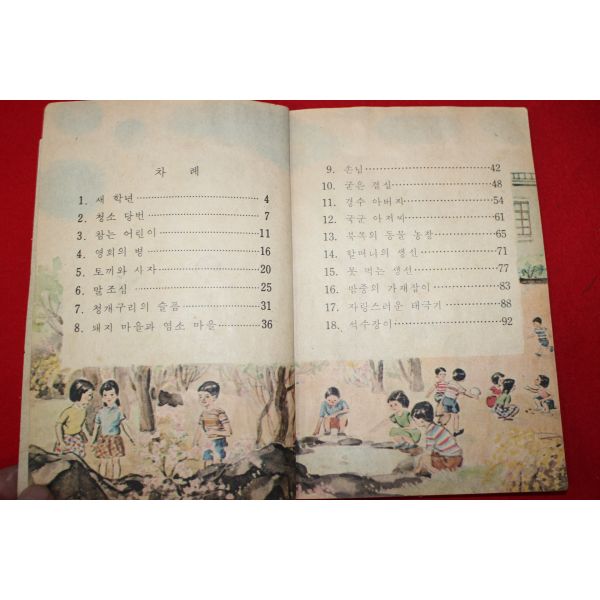 차 례
1. 새 학년 4
2. 청소 당번 7
3. 참는 어린이 11
4. 영희의 병 16
5. 토끼와 사자 20
6. 말조심 25
7. 청개구리의 슬픔 31
8. 돼지 마을과 염소 마을 36
9. 손님 42
10. 굳은 결심 48
11. 경수 아버지 54
12. 국군 아저씨 61
13. 복폭의 동물 농장 65
14. 할머니의 생선 71
15. 못 먹는 생선 77
16. 밤중의 가재잡이 83
17. 자랑스러운 태극기 88
18. 석수장이 92